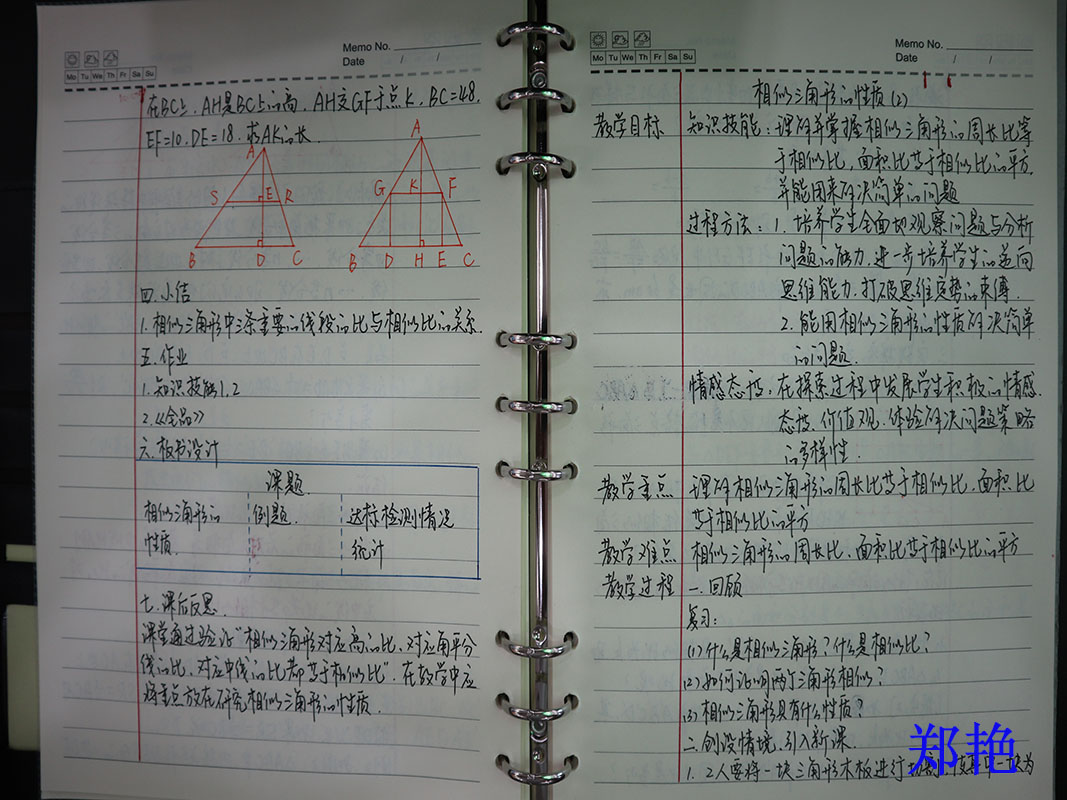 Memo No.
Date / /
Mo Tu We Th Fr Sa Su
在BC上, AH是BC上的高, AH交GF于点K, BC=48,
EF=10, DE=18, 求AK的长
A
S E R
B D C
A
G K F
B D H E C
四.小结
1.相似三角形中三条重要的线段的比与相似比的关系.
五.作业
1.知识技能1,2
2.《全品》
六.板书设计
课题.
相似三角形的 例题. 达标检测情况
性质. 统计
七.课后反思.
课堂通过验证"相似三角形对应高的比、对应角平分
线的比、对应中线的比都等于相似比", 在教学中应
将重点放在研究相似三角形的性质.
Memo No.
Date / /
Mo Tu We Th Fr Sa Su
相似三角形的性质(2)
教学目标 知识技能:理解并掌握相似三角形的周长比等
于相似比,面积比等于相似比的平方,
并能用来解决简单的问题
过程方法:1.培养学生全面地观察问题与分析
问题的能力,进一步培养学生的逆向
思维能力,打破思维定势的束缚.
2.能用相似三角形的性质解决简单
的问题.
情感态度:在探索过程中发展学生积极的情感.
态度.价值观.体验解决问题策略
的多样性.
教学重点 理解相似三角形的周长比等于相似比,面积比
等于相似比的平方
教学难点 相似三角形的周长比、面积比等于相似比的平方
教学过程 一.回顾
复习:
(1)什么是相似三角形?什么是相似比?
(2)如何证明两个三角形相似?
(3)相似三角形具有什么性质?
二.创设情境,引入新课.
1. 2人要将一块三角形木板进行
郑艳